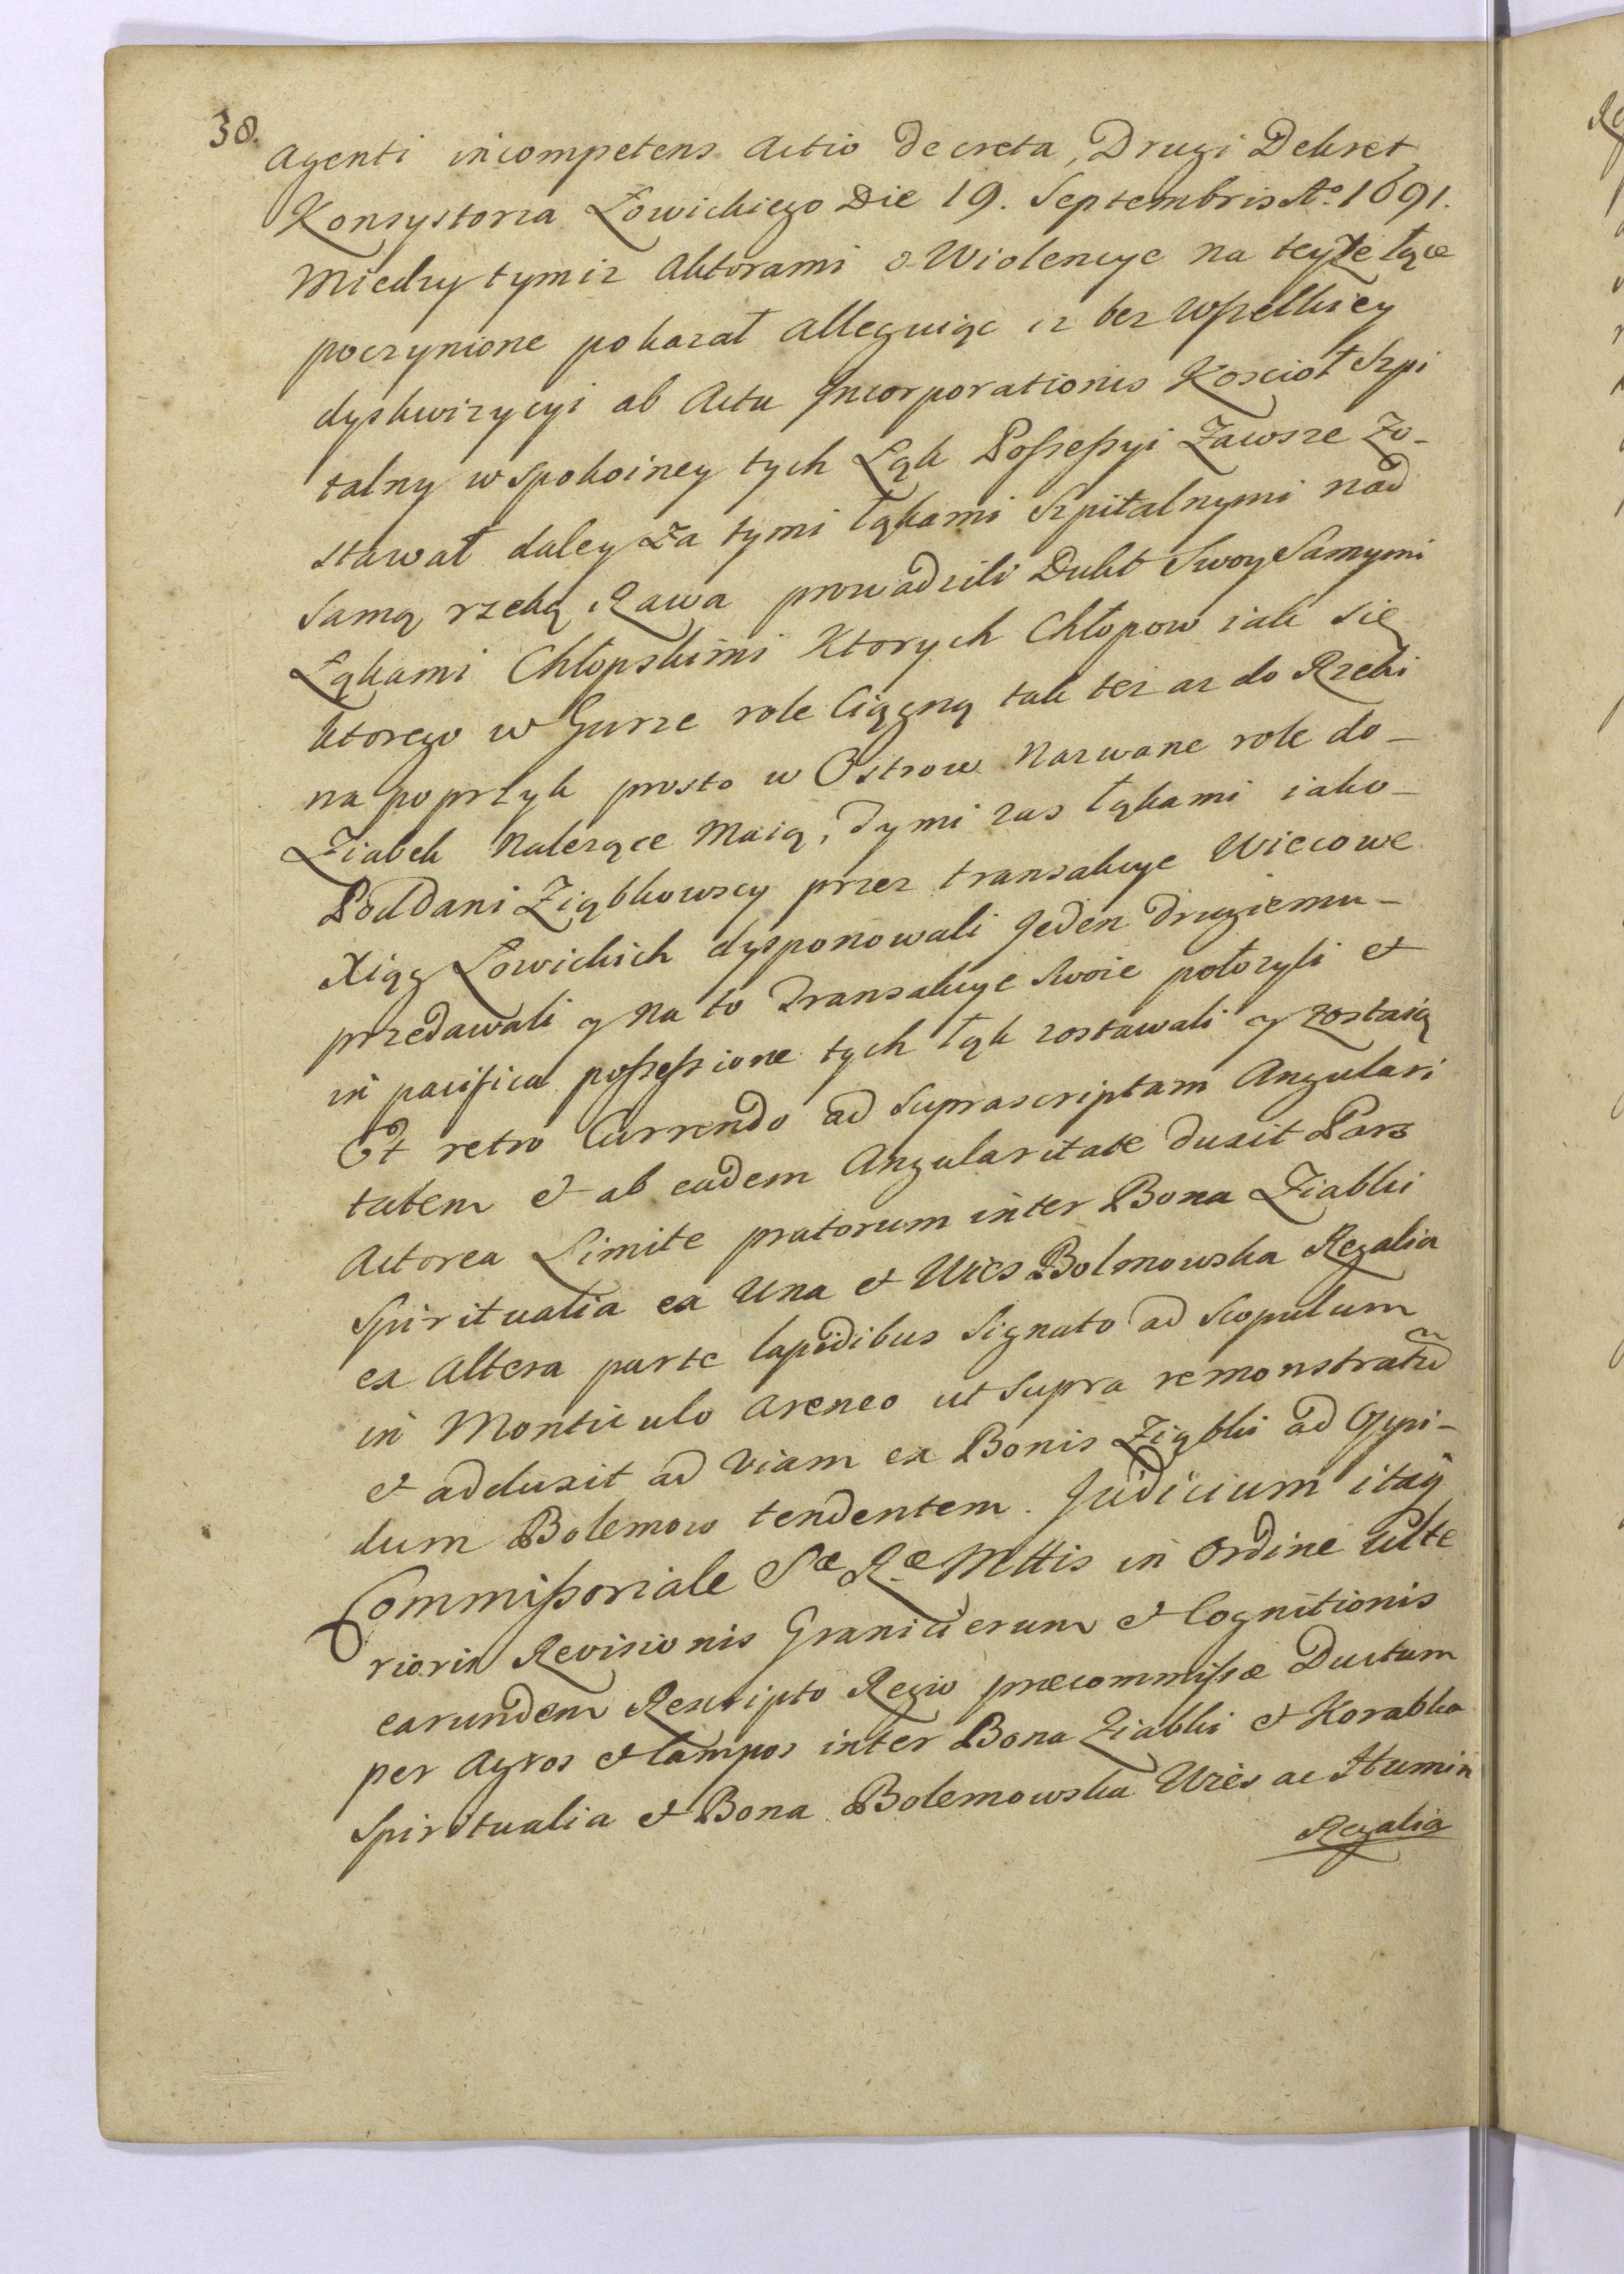 38.
Agenti incompetens Actio decreta, Drugi Dekret
Konsystorza Łowickiego Die 19. Septembris Ao. 1691.
Miedzy tymiz Aktorami o Wiolencye na teyże łące
poczynione pokazał alleguiąc iz bez wszelkiey
dyskwizycyi ab Actu Incorporationis Kościoł Szpi
talny w spokoiney tych Łąk Possessyi Zawsze Zo-
stawał daley Za tymi łąkami Szpitalnymi nad
Samą rzeką Rawa prowadzili Dukt Swoy Samymi
Łąkami Chłopskimi Ktorych Chłopow iak się
ktorego w Gurze role Ciągną tak tez az do Rzeki
na poprzyk prosto w Ostrow Nazwane role do-
Ziabek Nalezące Maią, Tymi zas łąkami iako-
Poddani Ziąbkowscy przez transakcye Wiecowe
Xiąg Łowickich dysponowali Jeden drugiemu-
przedawali y Na to Transakcye Swoie położyli et
in pacifica possessione tych łąk zostawali y zostaią
Et retro Currendo ad Suprascriptam Angulari
tatem et ab eadem Angularitate duxit Pars
Actorea Limite pratorum inter Bona Ziabki
Spiritualia ex Una et Wies Bolmowska Regalia
ex Altera parte lapidibus Signato ad Scopulum
in Monticulo Areneo ut Supra remonstratũ
et adduxit ad Viam ex Bonis Ziąbki ad Oppi-
dum Bolemow tendentem. Judicium itaq
Commissoriale Sæ Ræ Mttis in Ordine Ulte
rioris Revisionis Granicierum et Cognitionis
earundem Rescripto Regio præcommissæ Ductum
per Agros et Campos inter Bona Ziabki et Korabka
Spiritualia et Bona Bolemowska Wies ac Humin
Regalia